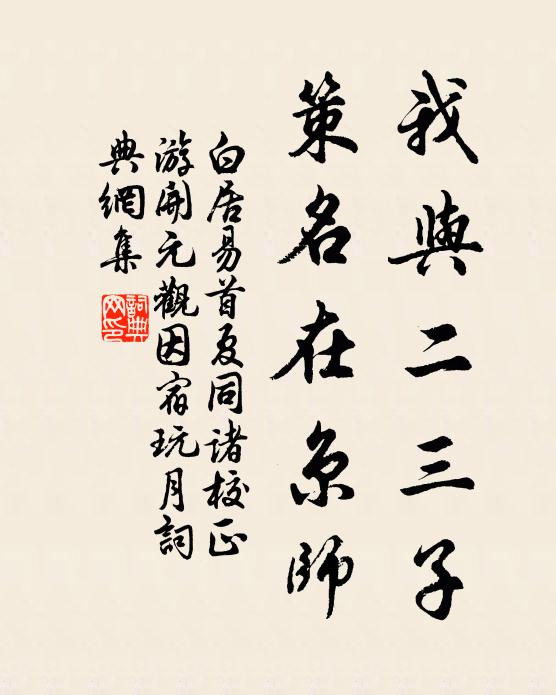 我與二三子
策名在京師
白居易首夏同諸校正
游開元觀因宿玩月詞
典網集
詞典
网印